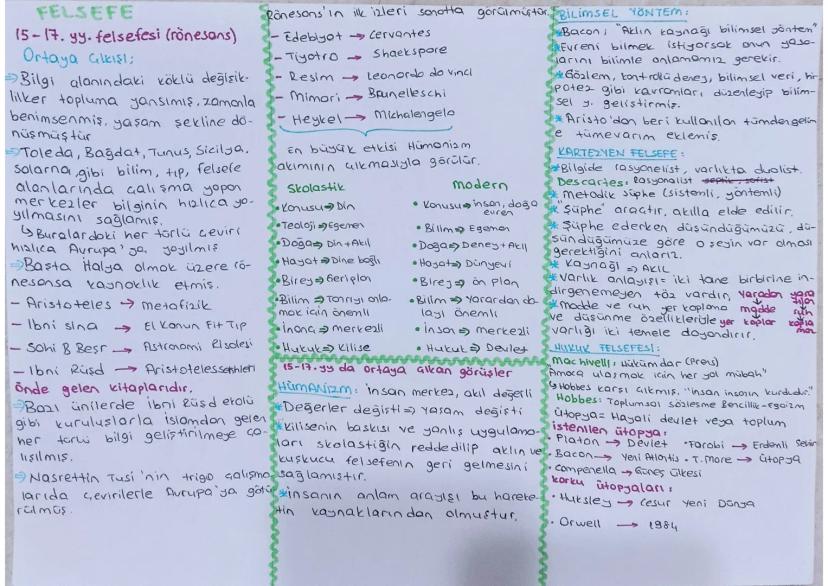 FELSEFE
15-17. yy. felsefesi (rönesans)
Ortaya Çıkışı;
⇒Bilgi alanındaki köklü değişik-
likler topluma yansımış, zamanla
benimsenmiş, yaşam şekline dö-
nüşmüştür
⇒Toleda, Bağdat, Tunus, Sicilya,
Salarna gibi bilim, tıp, felsefe
alanlarında çalışma yapan
merkezler bilginin hızlıca ya-
yılmasını sağlamış.
↳ Buralardaki her türlü çeviri
hızlıca Avrupa'ya yayılmış
⇒Başta İtalya olmak üzere rö-
nesansa kaynaklık etmiş.
- Aristoteles → metafizik
- İbni sina → El Kanun Fit Tıp
- Sahi B Beşr → Astronomi El solesi
- İbni Rüşd → Aristoteles şerhleri
önde gelen kitaplarıdır.
⇒Bazı ünilerde ibni Rüşd ekolü
gibi kuruluşlarla islamdan gelen
her türlü bilgi geliştirilmeye ça-
lışılmış.
⇒Nasrettin Tusi'nin trigo çalışma-
larıda çevirilerle Avrupa'ya götü
rülmüş.
Rönesans'ın ilk izleri sanatta görülmüştür.
- Edebiyat → Cervantes
- Tiyatro → Shaekspare
- Resim → Leonardo da vinci
- Mimari → Brunelleschi
- Heykel → Michalengelo
En büyük etkisi Hümanizm
akımının çıkmasıyla görülür.
Skolastik
• Konusu⇒Din
• Teoloji⇒Egemen
• Doğa⇒Din+Akıl
• Hayat⇒Dine bağlı
• Birey⇒Geriplan
• Bilim⇒Tanrıyı anla-
mak için önemli
• İnanç⇒merkezli
• Hukuk⇒Kilise
modern
• Konusu⇒insan, doğa
evren
• Bilim⇒Egemen
• Doğa⇒Deney+Akıl
• Hayat⇒Dünyevi
• Birey⇒ön Plan
• Bilim⇒Yarardan do-
layı önemli
• İnsan⇒merkezli
• Hukuk⇒Devlet
15-17. yy da ortaya çıkan görüşler
HÜMANİZM: İnsan merkez, akıl değerli
*Değerler değişti⇒yaşam değişti
*Kilisenin baskısı ve yanlış uygulama-
ları skolastiğin reddedilip aklın ve
kuşkucu felsefenin geri gelmesini
sağlamıştır.
*insanın anlam arayışı bu hareke-
tin kaynaklarından olmuştur.
BİLİMSEL YÖNTEM:
*Bacon; "Aklın kaynağı bilimsel yöntem"
*Evreni bilmek istiyorsak onun yasa-
larını bilimle anlamamız gerekir.
*Gözlem, kontrollü deney, bilimsel veri, hi-
potez gibi kavramları düzenleyip bilim-
sel y. geliştirmiş.
*Aristo'dan beri kullanılan tümdengelim
e tümevarım eklemiş.
KARTEZYEN FELSEFE:
*Bilgide rasyonelist, varlıkta dualist.
Descartes: Rasyonalist
*metodik şüphe (sistemli, yöntemli)
*"Şüphe" araçtır, akılla elde edilir.
*Şüphe ederken düşündüğümüzü, dü-
şündüğümüze göre o şeyin var olması
gerektiğini anlarız.
*Kaynağı ⇒ AKIL
*varlık anlayışı= iki tane birbirine in-
dirgenemeyen töz vardır. yaradan yara
tılan
*madde ve ruh yer kaplama madde ruh
ve düşünme özellikleriyle yer kaplar kapla
maz
varlığı iki temele dayandırır.
HUKUK FELSEFESİ:
Machivelli: Hükümdar (Prens)
"Amaca ulaşmak için her yol mübah"
↳Hobbes karşı çıkmış. "insan insanın kurdudur."
Hobbes: Toplumsal sözleşme Bencillik-egoizm
Ütopya= Hayali devlet veya toplum
istenilen ütopya:
• Platon → Devlet • Farabi → Erdemli Şehir
• Bacon → Yeni Atlantis • T.More → ütopya
• Campenella → Güneş Ülkesi
Korku ütopyaları:
• Huksley → Cesur Yeni Dünya
• Orwell → 1984